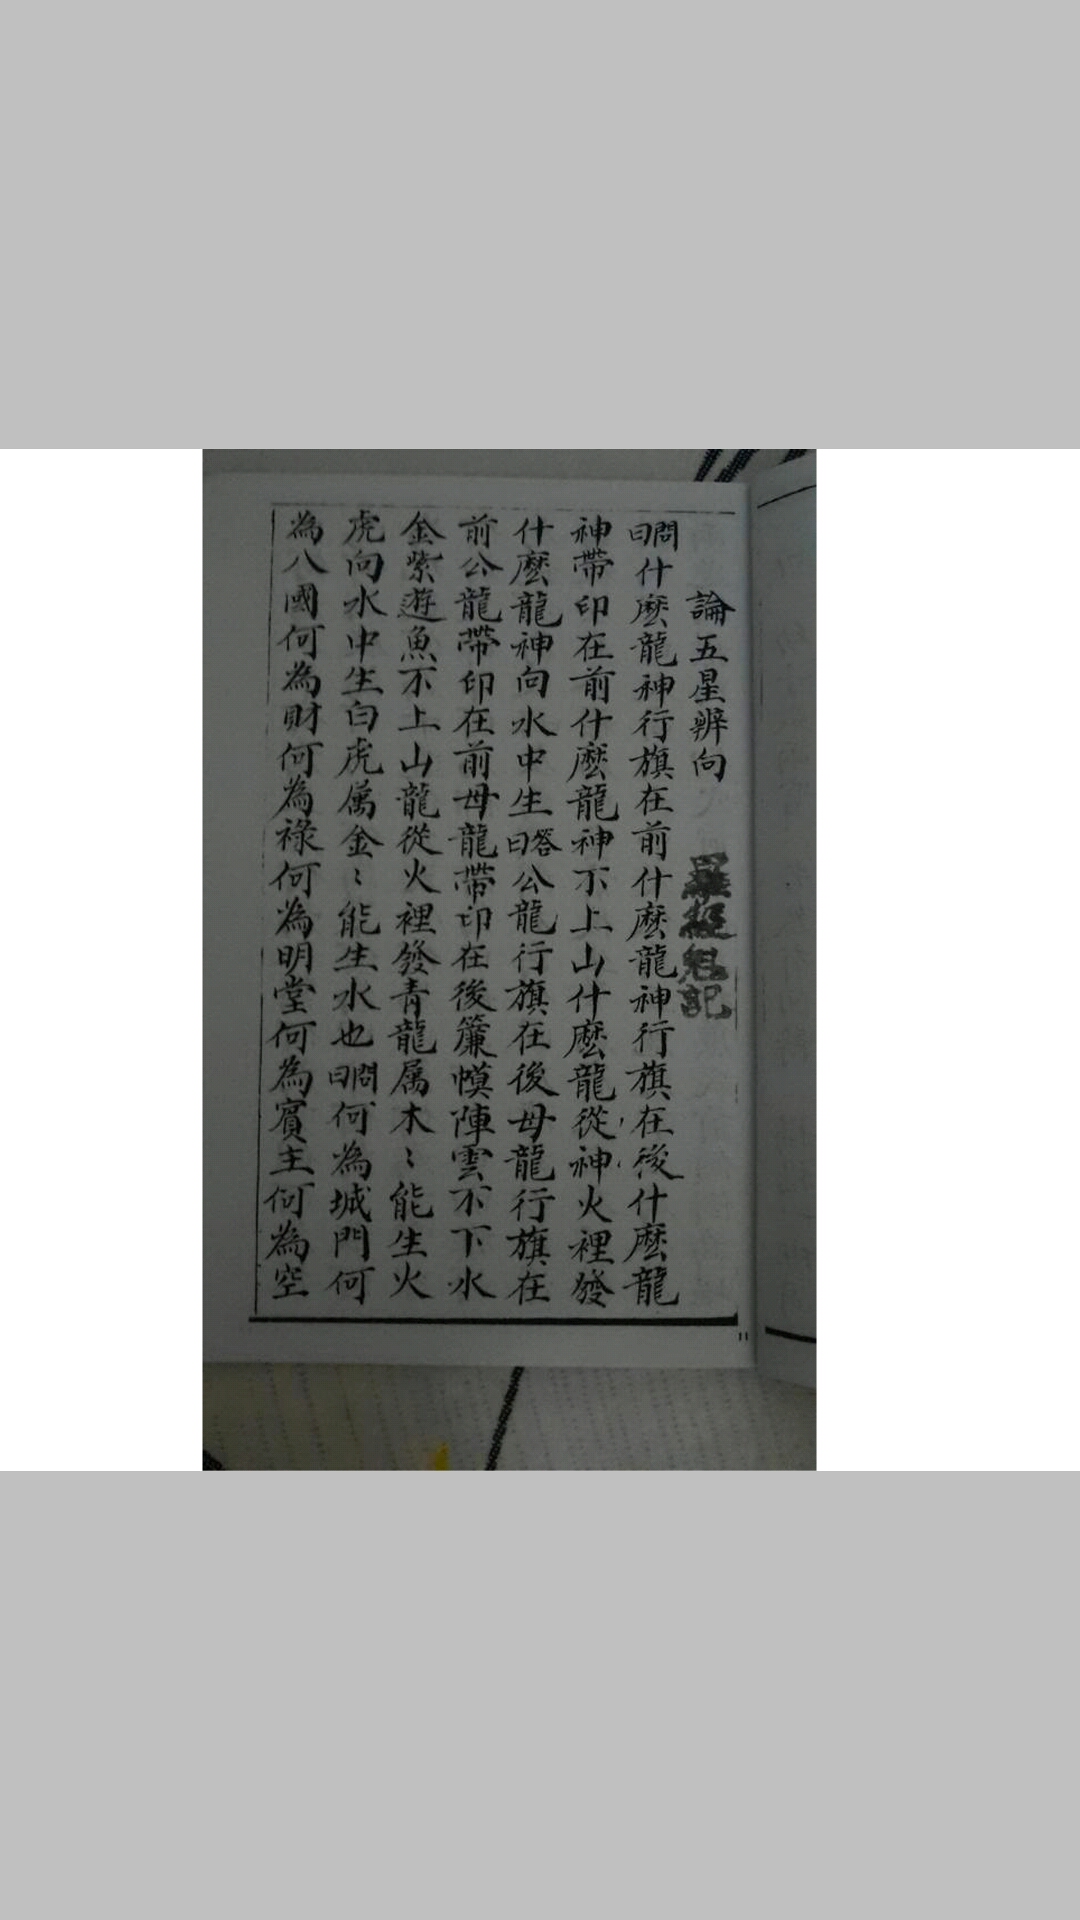 論五星辨向
問曰什麽龍神行旗在前什麽龍神行旗在後什麽龍
神帶印在前什麽龍神不上山什麽龍從神火裡發
什麽龍神向水中生答曰公龍行旗在後母龍行旗在
前公龍帶印在前母龍帶印在後簾幙陣雲不下水
金紫遊魚不上山龍從火裡發青龍属木〻能生火
虎向水中生白虎属金〻能生水也問曰何為城門何
為八國何為財何為祿何為明堂何為賓主何為空
11